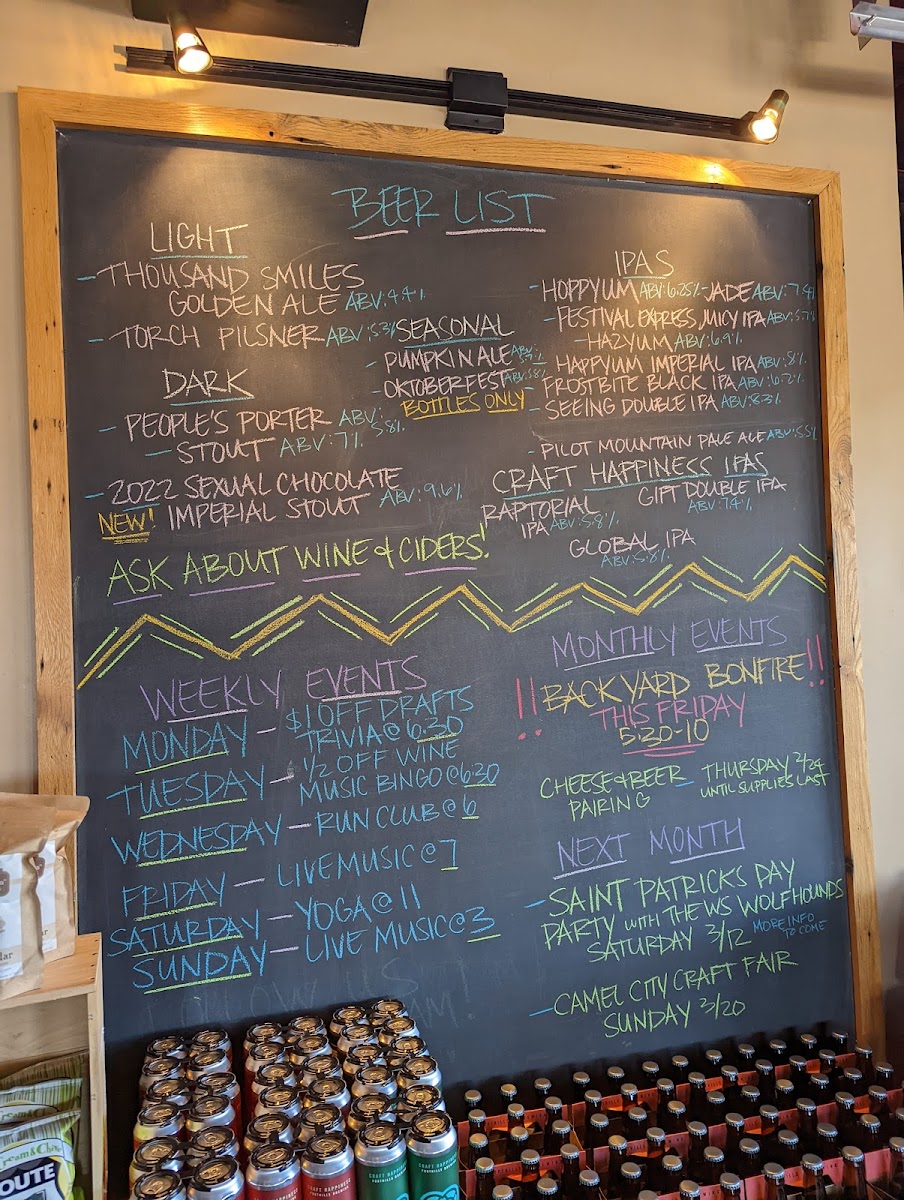 BEER LIST
LIGHT
- THOUSAND SMILES
GOLDEN ALE ABV: 4.4%
- TORCH PILSNER ABV: 5.3%
DARK
- PEOPLE'S PORTER ABV: 5.8%
- STOUT ABV: 7%
- 2022 SEXUAL CHOCOLATE
NEW! IMPERIAL STOUT ABV: 9.6%
SEASONAL
- PUMPKIN ALE ABV:
- OKTOBERFEST ABV: 5.8%
BOTTLES ONLY
IPAS
- HOPPYUM ABV: 6.25% - JADE ABV: 7.4%
- FESTIVAL EXPRESS JUICY IPA ABV: 5.7%
- HAZYUM ABV: 6.9%
- HAPPYUM IMPERIAL IPA ABV: 8%
- FROSTBITE BLACK IPA ABV: 6.2%
- SEEING DOUBLE IPA ABV: 8.3%
- PILOT MOUNTAIN PALE ALE ABV: 5.5%
CRAFT HAPPINESS IPAS
RAPTORIAL
IPA ABV: 5.8%
GIFT DOUBLE IPA
ABV: 7.4%
GLOBAL IPA
ABV: 5.8%
ASK ABOUT WINE & CIDERS!
WEEKLY EVENTS
MONDAY - $1 OFF DRAFTS
TRIVIA @ 6:30
TUESDAY - 1/2 OFF WINE
MUSIC BINGO @ 6:30
WEDNESDAY - RUN CLUB @ 6
FRIDAY - LIVE MUSIC @ 7
SATURDAY - YOGA @ 11
SUNDAY - LIVE MUSIC @ 3
FOLLOW US
MONTHLY EVENTS
!! BACKYARD BONFIRE !!
THIS FRIDAY
5:30-10
CHEESE & BEER
PAIRING - THURSDAY 2/24
UNTIL SUPPLIES LAST
NEXT MONTH
- SAINT PATRICKS DAY
PARTY WITH THE WS WOLFHOUNDS
SATURDAY 3/12 MORE INFO
TO COME
- CAMEL CITY CRAFT FAIR
SUNDAY 3/20
CRAFT HAPPINESS